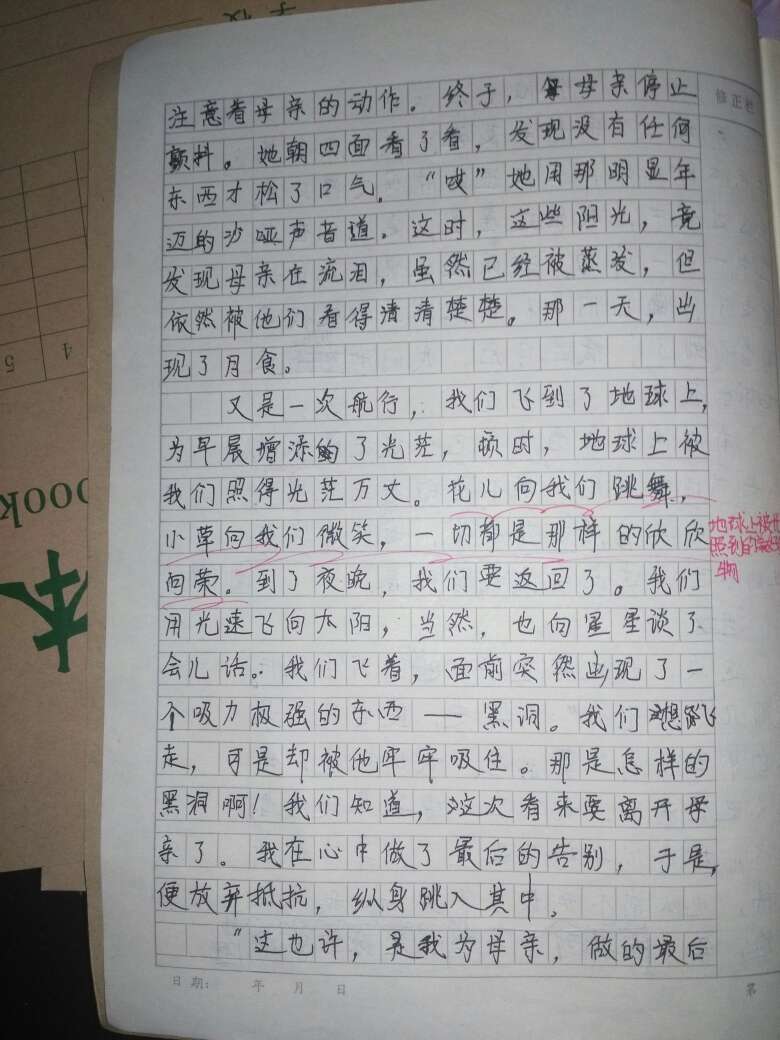 注意着母亲的动作。终于，母亲停止
颤抖。她朝四面看了看，发现没有任何
东西才松了口气。“哎”她用那明显年
迈的沙哑声音道。这时，这些阳光，竟
发现母亲在流泪，虽然已经被蒸发，但
依然被他们看得清清楚楚。那一天，出
现了月食。
又是一次航行，我们飞到了地球上，
为早晨增添了光茫，顿时，地球上被
我们照得光茫万丈。花儿向我们跳舞，
小草向我们微笑，一切都是那样的欣欣
向荣。到了夜晚，我们要返回了。我们
用光速飞向太阳，当然，也向星星谈了
会儿话。我们飞着，面前突然出现了一
个吸力极强的东西——黑洞。我们想飞
走，可是却被他牢牢吸住。那是怎样的
黑洞啊！我们知道，这次看来要离开母
亲了。我在心中做了最后的告别，于是，
便放弃抵抗，纵身跳入其中。
“这也许，是我为母亲，做的最后
地球上被
照到的
物
修正栏
日期： 年 月 日
第
本
book
4
5